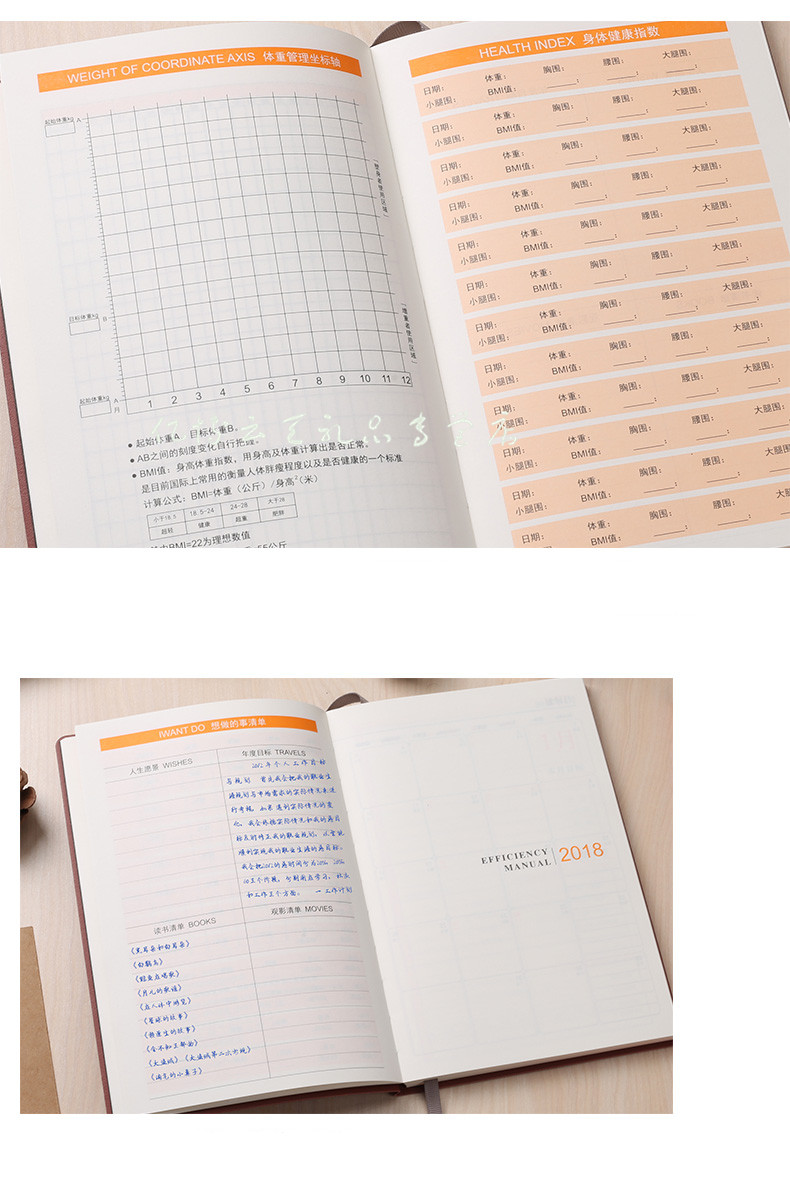 WEIGHT OF COORDINATE AXIS 体重管理坐标轴
起始体重kg A
想身者使用区域
目标体重kg B
增重者使用区域
起始体重kg A
月 1 2 3 4 5 6 7 8 9 10 11 12
● 起始体重A、目标体重B。
● AB之间的刻度变化自行把握。
● BMI值：身高体重指数，用身高及体重计算出是否正常。
是目前国际上常用的衡量人体胖瘦程度以及是否健康的一个标准
计算公式：BMI=体重（公斤）/身高²（米）
小于18.5 18.5-24 24-28 大于28
超轻 健康 超重 肥胖
BMI=22为理想数值
55公斤
HEALTH INDEX 身体健康指数
日期： 体重： 胸围： 腰围： 大腿围：
小腿围： BMI值： ； ； ；
日期： 体重： 胸围： 腰围： 大腿围：
小腿围： BMI值： ； ； ；
日期： 体重： 胸围： 腰围： 大腿围：
小腿围： BMI值： ； ； ；
日期： 体重： 胸围： 腰围： 大腿围：
小腿围： BMI值： ； ； ；
日期： 体重： 胸围： 腰围： 大腿围：
小腿围： BMI值： ； ； ；
日期： 体重： 胸围： 腰围： 大腿围：
小腿围： BMI值： ； ； ；
日期： 体重： 胸围： 腰围： 大腿围：
小腿围： BMI值： ； ； ；
日期： 体重： 胸围： 腰围： 大腿围：
小腿围： BMI值： ； ； ；
日期： 体重： 胸围： 腰围： 大腿围：
小腿围： BMI值： ； ； ；
日期： 体重： 胸围： 腰围： 大腿围：
小腿围： BMI值： ； ； ；
日期： 体重： 胸围： 腰围： 大腿围：
小腿围： BMI值： ； ； ；
日期： 体重： 胸围： 腰围：
BMI值：
IWANT DO 想做的事清单
人生愿签 WISHES
年度目标 TRAVELS
2012年个人工作目标
与规划 首先我会把我的职业生
涯规划与市场需求的实际情况来进
行考核，如果遇到实际情况的变
化，我会根据实际情况和我的为目
标及时修正我的职业规划，以至能
顺利实现我的职业生涯的为目标。
和工作三个方面。 一 工作计划
读书清单 BOOKS
观影清单 MOVIES
《黑耳朵和白耳朵》
《白鹤鸟》
《月儿的歌谣》
《在人体中游览》
《星球的故事》
《大盗贼》《大盗贼第二次出现》
《淘气的小裹子》
EFFICIENCY
MANUAL 2018